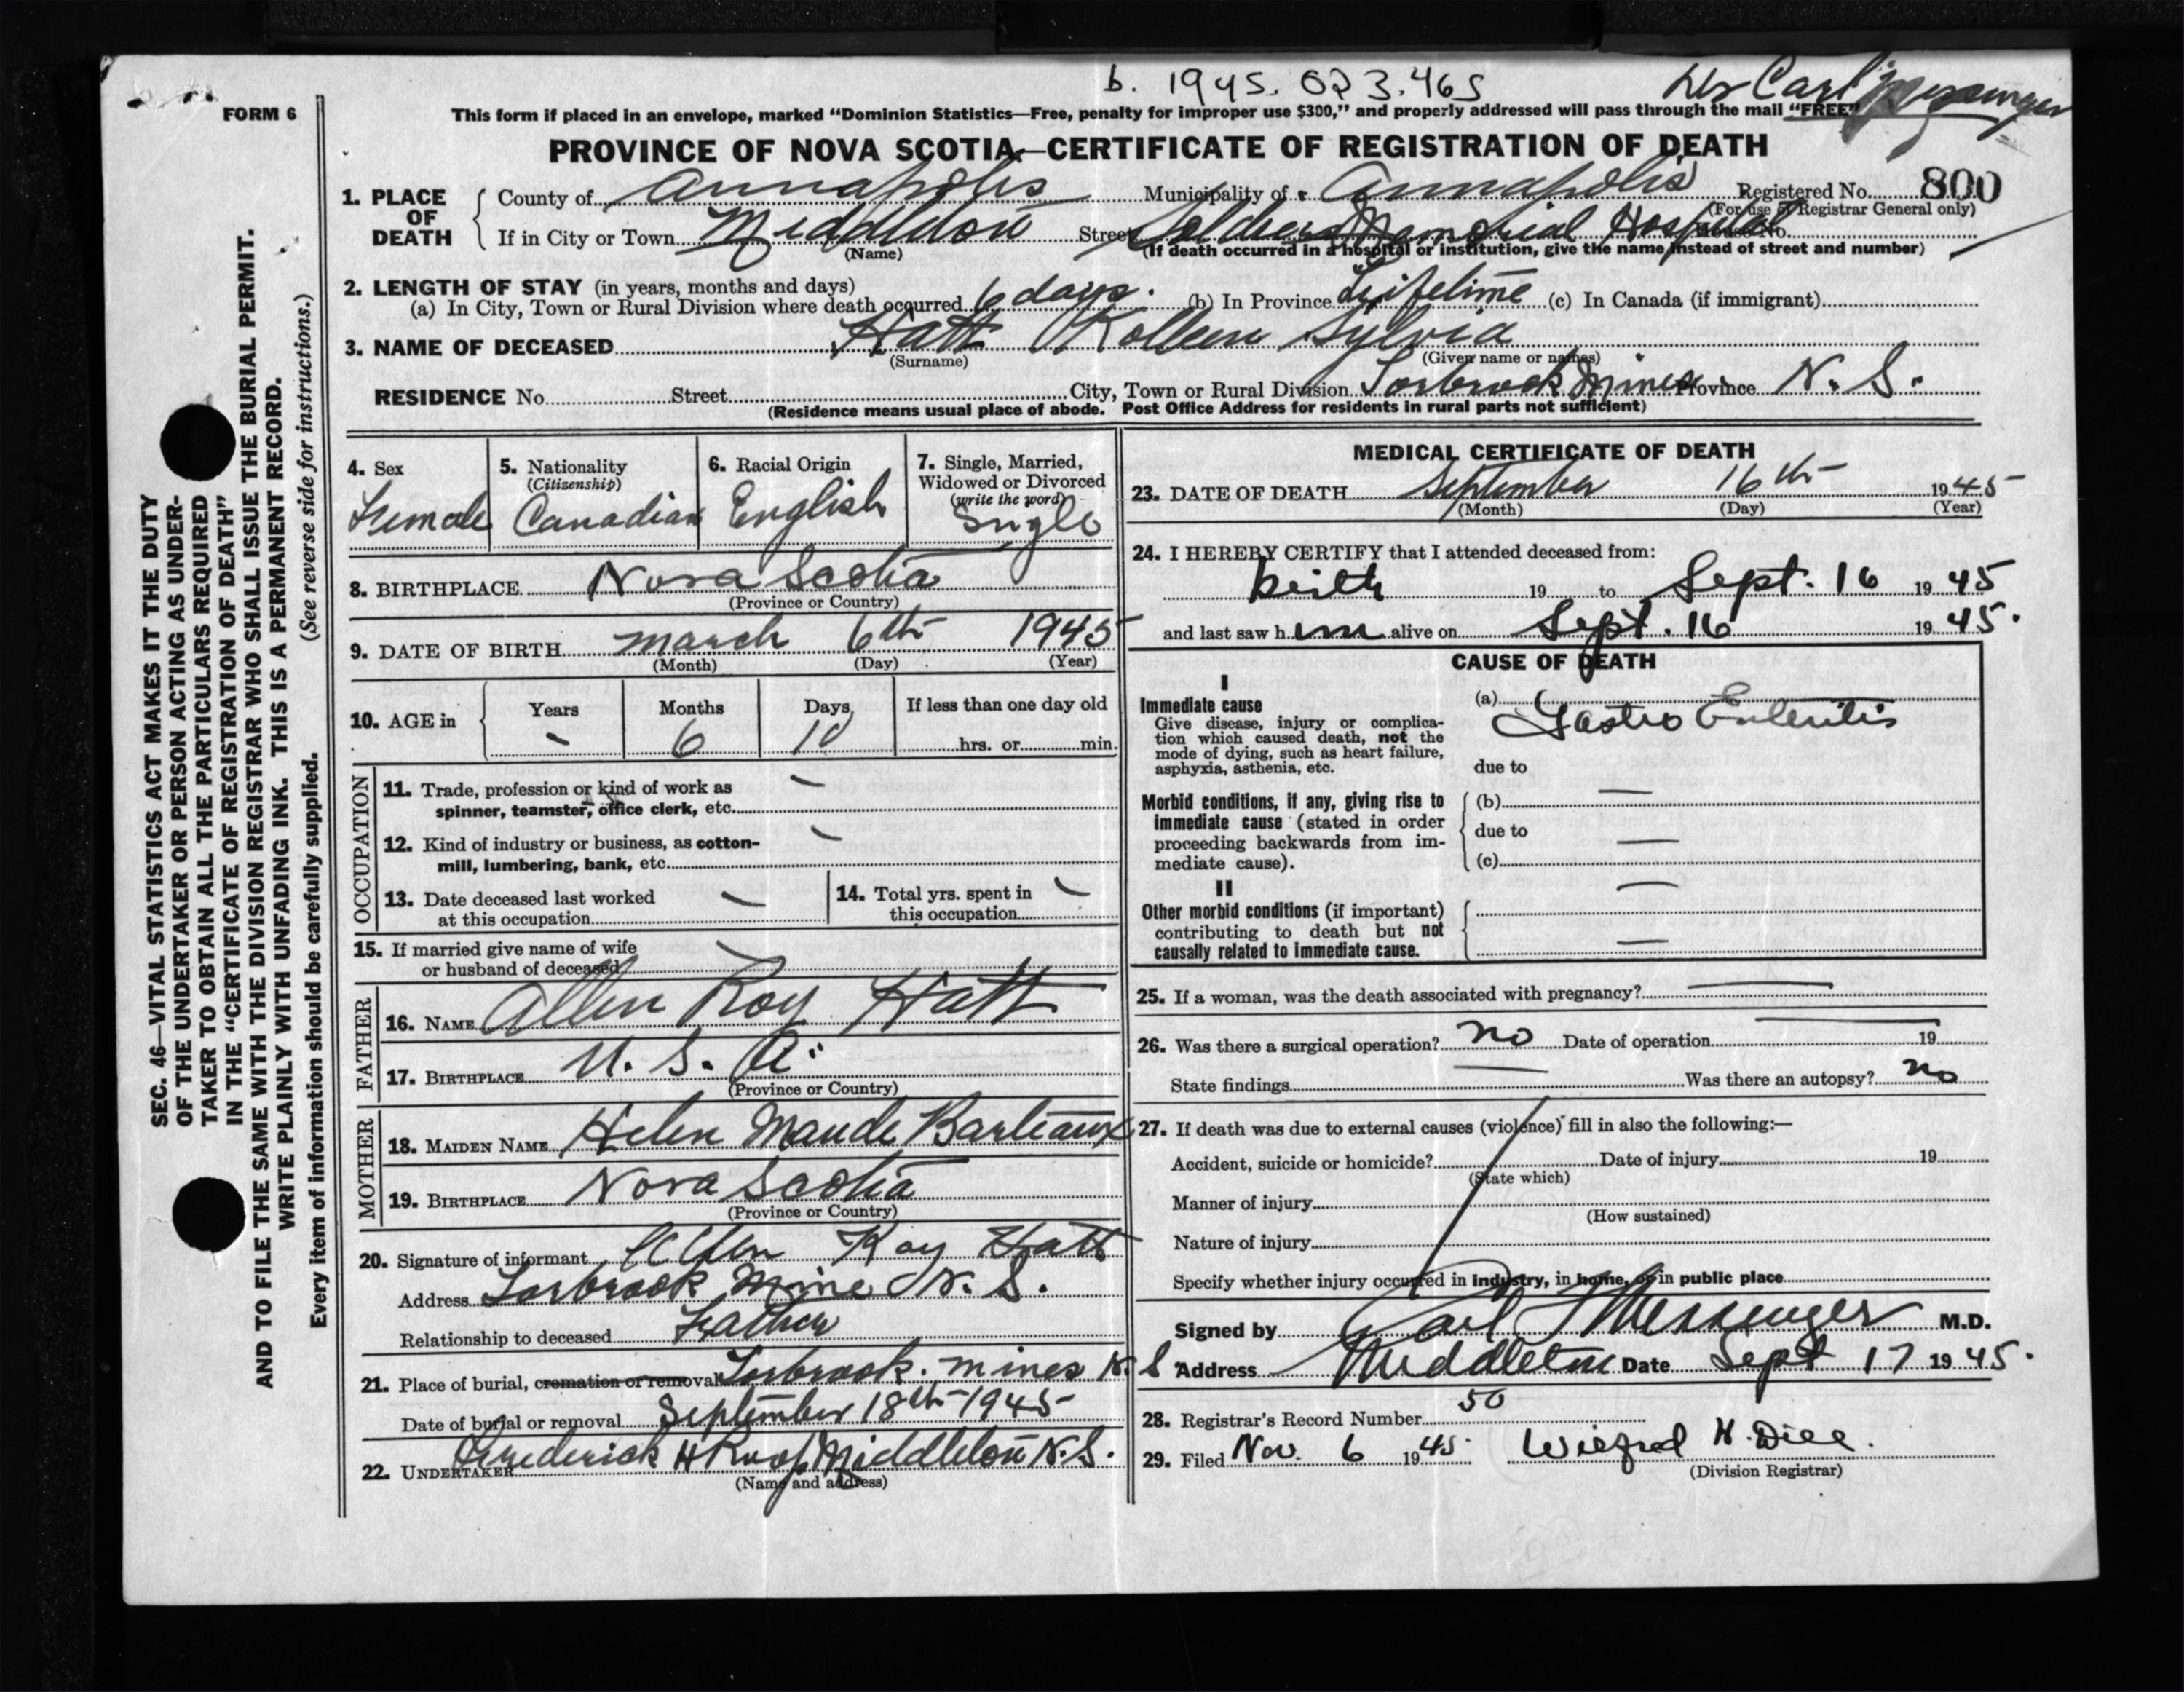 b. 1945. 023.465
Dr Carl Messenger
FORM 6
This form if placed in an envelope, marked “Dominion Statistics—Free, penalty for improper use $300,” and properly addressed will pass through the mail “FREE”
PROVINCE OF NOVA SCOTIA—CERTIFICATE OF REGISTRATION OF DEATH
1. PLACE OF DEATH County of Annapolis Municipality of Annapolis Registered No. 800
(For use of Registrar General only)
If in City or Town Middleton Street Soldiers Memorial Hospital House No.
(Name) (If death occurred in a hospital or institution, give the name instead of street and number)
2. LENGTH OF STAY (in years, months and days)
(a) In City, Town or Rural Division where death occurred 6 days. (b) In Province Lifetime (c) In Canada (if immigrant)
3. NAME OF DECEASED Hatt Kolleen Sylvia
(Surname) (Given name or names)
RESIDENCE No. Street City, Town or Rural Division Torbrook Mines Province N. S.
(Residence means usual place of abode. Post Office Address for residents in rural parts not sufficient)
4. Sex Female
5. Nationality (Citizenship) Canadian
6. Racial Origin English
7. Single, Married, Widowed or Divorced (write the word) Single
8. BIRTHPLACE Nova Scotia
(Province or Country)
9. DATE OF BIRTH March 6th 1945
(Month) (Day) (Year)
10. AGE in Years - Months 6 Days 10 If less than one day old
hrs. or min.
OCCUPATION
11. Trade, profession or kind of work as —
spinner, teamster, office clerk, etc.
12. Kind of industry or business, as cotton- —
mill, lumbering, bank, etc.
13. Date deceased last worked at this occupation —
14. Total yrs. spent in this occupation —
15. If married give name of wife —
or husband of deceased
FATHER
16. NAME Allen Roy Hatt
17. BIRTHPLACE U. S. A.
(Province or Country)
MOTHER
18. MAIDEN NAME Helen Maude Barteaux
19. BIRTHPLACE Nova Scotia
(Province or Country)
20. Signature of informant Allen Roy Hatt
Address Torbrook Mine N. S.
Relationship to deceased Father
21. Place of burial, cremation or removal Torbrook. Mines N. S
Date of burial or removal September 18th 1945
22. UNDERTAKER Frederick H Roop Middleton N. S.
(Name and address)
MEDICAL CERTIFICATE OF DEATH
23. DATE OF DEATH September 16th 1945
(Month) (Day) (Year)
24. I HEREBY CERTIFY that I attended deceased from:
birth 19 to Sept. 16 1945
and last saw h im alive on Sept. 16 1945.
CAUSE OF DEATH
I
Immediate cause
Give disease, injury or complica-
tion which caused death, not the
mode of dying, such as heart failure,
asphyxia, asthenia, etc.
(a) Gastro Enteritis
due to
Morbid conditions, if any, giving rise to
immediate cause (stated in order
proceeding backwards from im-
mediate cause).
(b) —
due to —
(c) —
II
Other morbid conditions (if important)
contributing to death but not
causally related to immediate cause. —
25. If a woman, was the death associated with pregnancy? —
26. Was there a surgical operation? no Date of operation — 19
State findings — Was there an autopsy? no
27. If death was due to external causes (violence) fill in also the following:—
Accident, suicide or homicide? Date of injury 19
(State which)
Manner of injury
(How sustained)
Nature of injury
Specify whether injury occurred in industry, in home, or in public place
Signed by Carl Messenger M.D.
Address Middleton Date Sept 17 1945.
28. Registrar's Record Number 50
29. Filed Nov. 6 1945. Wilfred H. Dill.
(Division Registrar)
SEC. 46—VITAL STATISTICS ACT MAKES IT THE DUTY
OF THE UNDERTAKER OR PERSON ACTING AS UNDER-
TAKER TO OBTAIN ALL THE PARTICULARS REQUIRED
IN THE “CERTIFICATE OF REGISTRATION OF DEATH”
AND TO FILE THE SAME WITH THE DIVISION REGISTRAR WHO SHALL ISSUE THE BURIAL PERMIT.
WRITE PLAINLY WITH UNFADING INK. THIS IS A PERMANENT RECORD.
Every item of information should be carefully supplied. (See reverse side for instructions.)